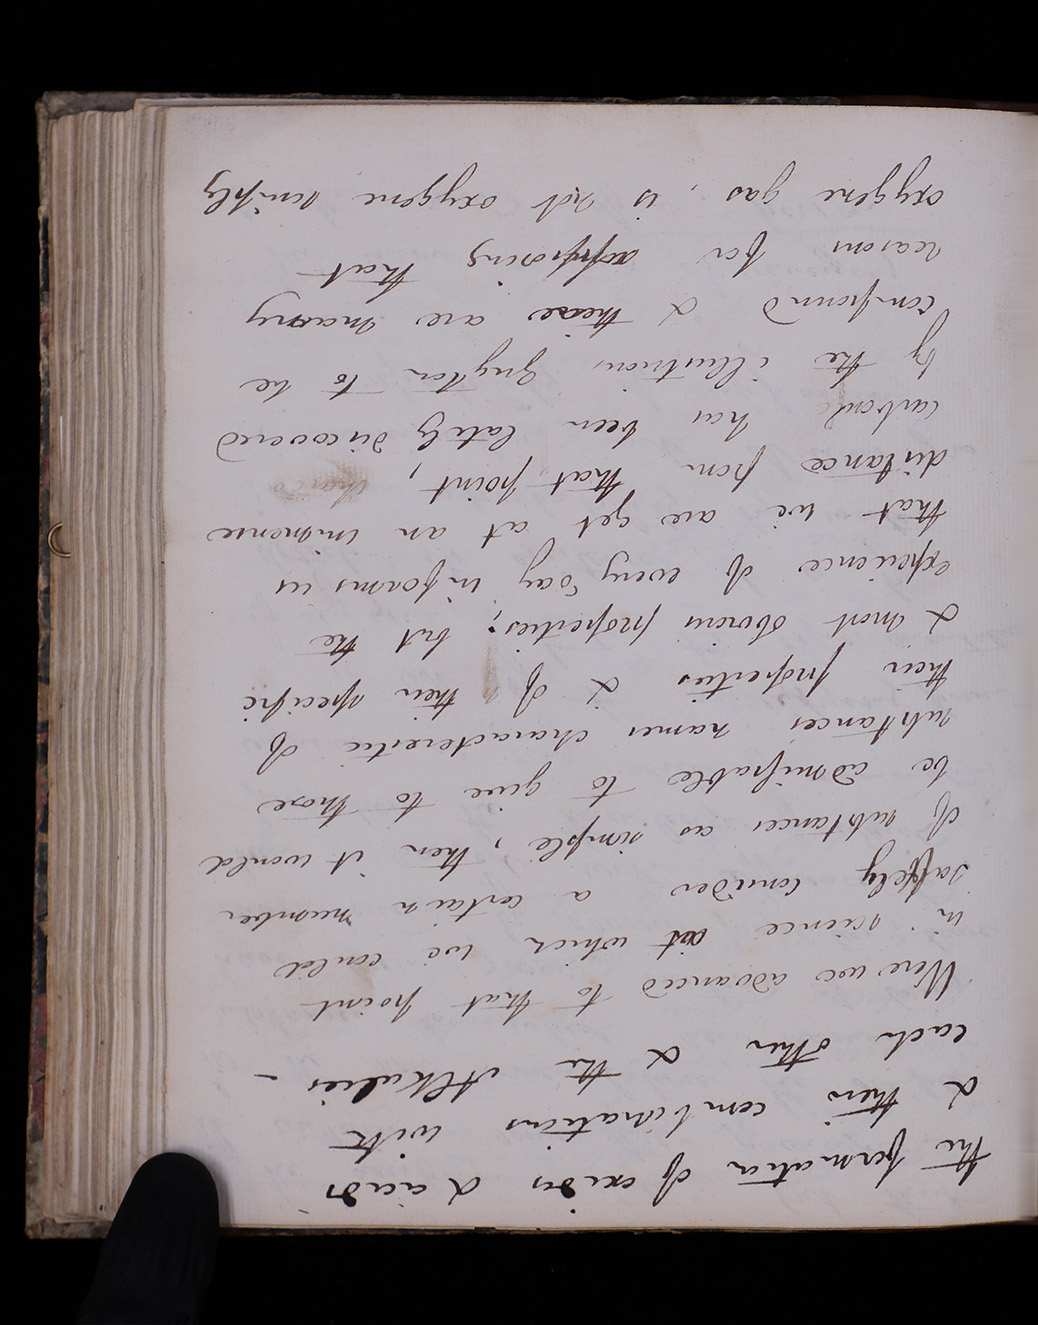 the formation of oxides & acids
& their combinations with
each other & the Alkalies –
Were we advanced to that point
in science at which we could
safely consider a certain number
of substances as simple, then it would
be admissable to give to those
substances names characteristic of
their properties & of their specific
& most obvious properties; but the
experience of every day informs us
that we are yet at an immense
distance from that point,
carbone has been lately discovered
by the illustrious Guyton to be
compound & there are many
reasons for supposing that
oxygene gas, is not oxygene simply